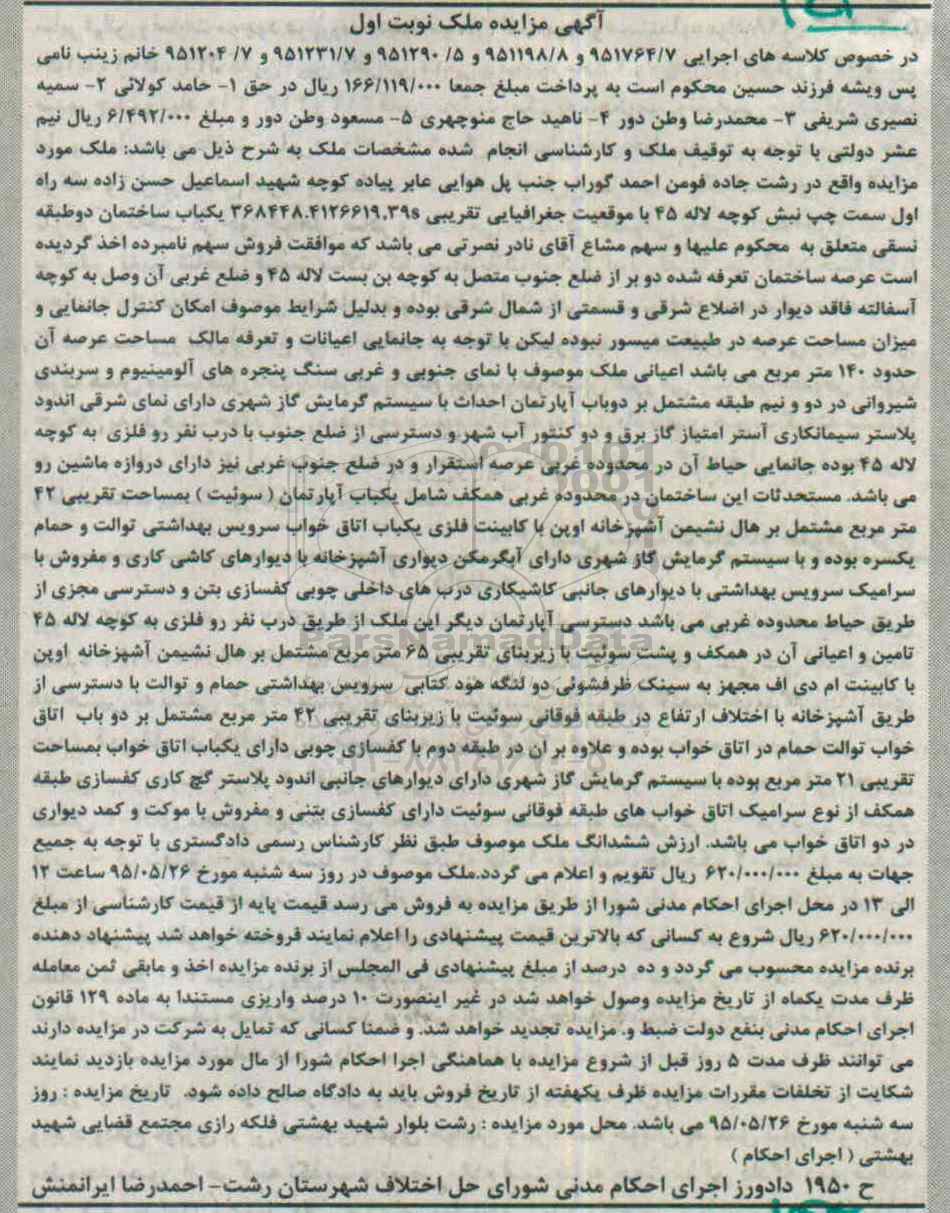 آگهی مزایده ملک نوبت اول
در خصوص کلاسه های اجرایی ۹۵۱۷۶۴/۷ و ۹۵۱۱۹۸/۸ و ۵/ ۹۵۱۲۹۰ و ۹۵۱۲۳۱/۷ و ۷/ ۹۵۱۲۰۴ خانم زینب نامی
پس ویشه فرزند حسین محکوم است به پرداخت مبلغ جمعا ۱۶۶/۱۱۹/۰۰۰ ریال در حق ۱- حامد کولائی ۲- سمیه
نصیری شریفی ۳- محمدرضا وطن دور ۴- ناهید حاج منوچهری ۵- مسعود وطن دور و مبلغ ۶/۴۹۲/۰۰۰ ریال نیم
عشر دولتی با توجه به توقیف ملک و کارشناسی انجام شده مشخصات ملک به شرح ذیل می باشد: ملک مورد
مزایده واقع در رشت جاده فومن احمد گوراب جنب پل هوایی عابر پیاده کوچه شهید اسماعیل حسن زاده سه راه
اول سمت چپ نبش کوچه لاله ۴۵ با موقعیت جغرافیایی تقریبی ۳۶۸۴۴۸.۴۱۲۶۶۱۹.۳۹s یکباب ساختمان دوطبقه
نسقی متعلق به محکوم علیها و سهم مشاع آقای نادر نصرتی می باشد که موافقت فروش سهم نامبرده اخذ گردیده
است عرصه ساختمان تعرفه شده دو بر از ضلع جنوب متصل به کوچه بن بست لاله ۴۵ و ضلع غربی آن وصل به کوچه
آسفالته فاقد دیوار در اضلاع شرقی و قسمتی از شمال شرقی بوده و بدلیل شرایط موصوف امکان کنترل جانمایی و
میزان مساحت عرصه در طبیعت میسور نبوده لیکن با توجه به جانمایی اعیانات و تعرفه مالک مساحت عرصه آن
حدود ۱۴۰ متر مربع می باشد اعیانی ملک موصوف با نمای جنوبی و غربی سنگ پنجره های آلومینیوم و سربندی
شیروانی در دو و نیم طبقه مشتمل بر دوباب آپارتمان احداث با سیستم گرمایش گاز شهری دارای نمای شرقی اندود
پلاستر سیمانکاری آستر امتیاز گاز برق و دو کنتور آب شهر و دسترسی از ضلع جنوب با درب نفر رو فلزی به کوچه
لاله ۴۵ بوده جانمایی حیاط آن در محدوده غربی عرصه استقرار و در ضلع جنوب غربی نیز دارای دروازه ماشین رو
می باشد. مستحدثات این ساختمان در محدوده غربی همکف شامل یکباب آپارتمان ( سوئیت ) بمساحت تقریبی ۴۲
متر مربع مشتمل بر هال نشیمن آشپزخانه اوپن با کابینت فلزی یکباب اتاق خواب سرویس بهداشتی توالت و حمام
یکسره بوده و با سیستم گرمایش گاز شهری دارای آبگرمکن دیواری آشپزخانه با دیوارهای کاشی کاری و مفروش با
سرامیک سرویس بهداشتی با دیوارهای جانبی کاشیکاری درب های داخلی چوبی کفسازی بتن و دسترسی مجزی از
طریق حیاط محدوده غربی می باشد دسترسی آپارتمان دیگر این ملک از طریق درب نفر رو فلزی به کوچه لاله ۴۵
تامین و اعیانی آن در همکف و پشت سوئیت با زیربنای تقریبی ۶۵ متر مربع مشتمل بر هال نشیمن آشپزخانه اوپن
با کابینت ام دی اف مجهز به سینک ظرفشوئی دو لنگه هود کتابی سرویس بهداشتی حمام و توالت با دسترسی از
طریق آشپزخانه با اختلاف ارتفاع در طبقه فوقانی سوئیت با زیربنای تقریبی ۴۲ متر مربع مشتمل بر دو باب اتاق
خواب توالت حمام در اتاق خواب بوده و علاوه بر ان در طبقه دوم با کفسازی چوبی دارای یکباب اتاق خواب بمساحت
تقریبی ۲۱ متر مربع بوده با سیستم گرمایش گاز شهری دارای دیوارهای جانبی اندود پلاستر گچ کاری کفسازی طبقه
همکف از نوع سرامیک اتاق خواب های طبقه فوقانی سوئیت دارای کفسازی بتنی و مفروش با موکت و کمد دیواری
در دو اتاق خواب می باشد. ارزش ششدانگ ملک موصوف طبق نظر کارشناس رسمی دادگستری با توجه به جمیع
جهات به مبلغ ۶۲۰/۰۰۰/۰۰۰ ریال تقویم و اعلام می گردد.ملک موصوف در روز سه شنبه مورخ ۹۵/۰۵/۲۶ ساعت ۱۲
الی ۱۳ در محل اجرای احکام مدنی شورا از طریق مزایده به فروش می رسد قیمت پایه از قیمت کارشناسی از مبلغ
۶۲۰/۰۰۰/۰۰۰ ریال شروع به کسانی که بالاترین قیمت پیشنهادی را اعلام نمایند فروخته خواهد شد پیشنهاد دهنده
برنده مزایده محسوب می گردد و ده درصد از مبلغ پیشنهادی فی المجلس از برنده مزایده اخذ و مابقی ثمن معامله
ظرف مدت یکماه از تاریخ مزایده وصول خواهد شد در غیر اینصورت ۱۰ درصد واریزی مستندا به ماده ۱۲۹ قانون
اجرای احکام مدنی بنفع دولت ضبط و. مزایده تجدید خواهد شد. و ضمنا کسانی که تمایل به شرکت در مزایده دارند
می توانند ظرف مدت ۵ روز قبل از شروع مزایده با هماهنگی اجرا احکام شورا از مال مورد مزایده بازدید نمایند
شکایت از تخلفات مقررات مزایده ظرف یکهفته از تاریخ فروش باید به دادگاه صالح داده شود. تاریخ مزایده : روز
سه شنبه مورخ ۹۵/۰۵/۲۶ می باشد. محل مورد مزایده : رشت بلوار شهید بهشتی فلکه رازی مجتمع قضایی شهید
بهشتی ( اجرای احکام )
ح ۱۹۵۰ دادورز اجرای احکام مدنی شورای حل اختلاف شهرستان رشت- احمدرضا ایرانمنش
ParsNamadData